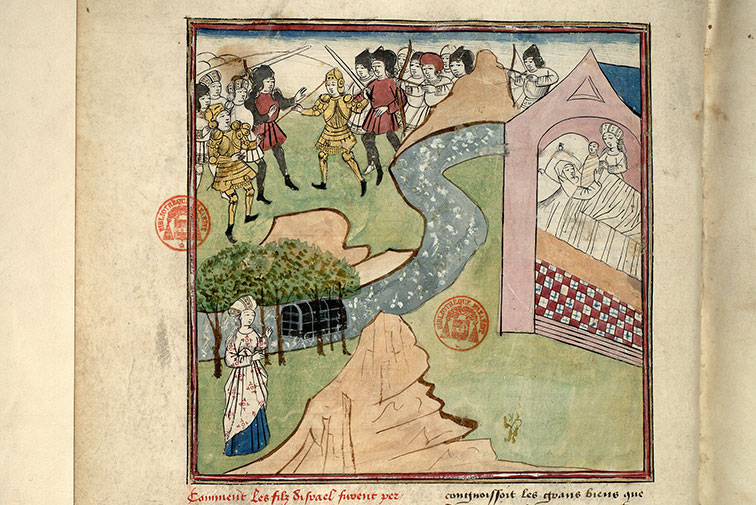 BIBLIOTHEQUE MAZARINE
BIBLIOTHEQUE MAZARINE
Comment les filz disrael furent per
congnoissoit les grans biens que